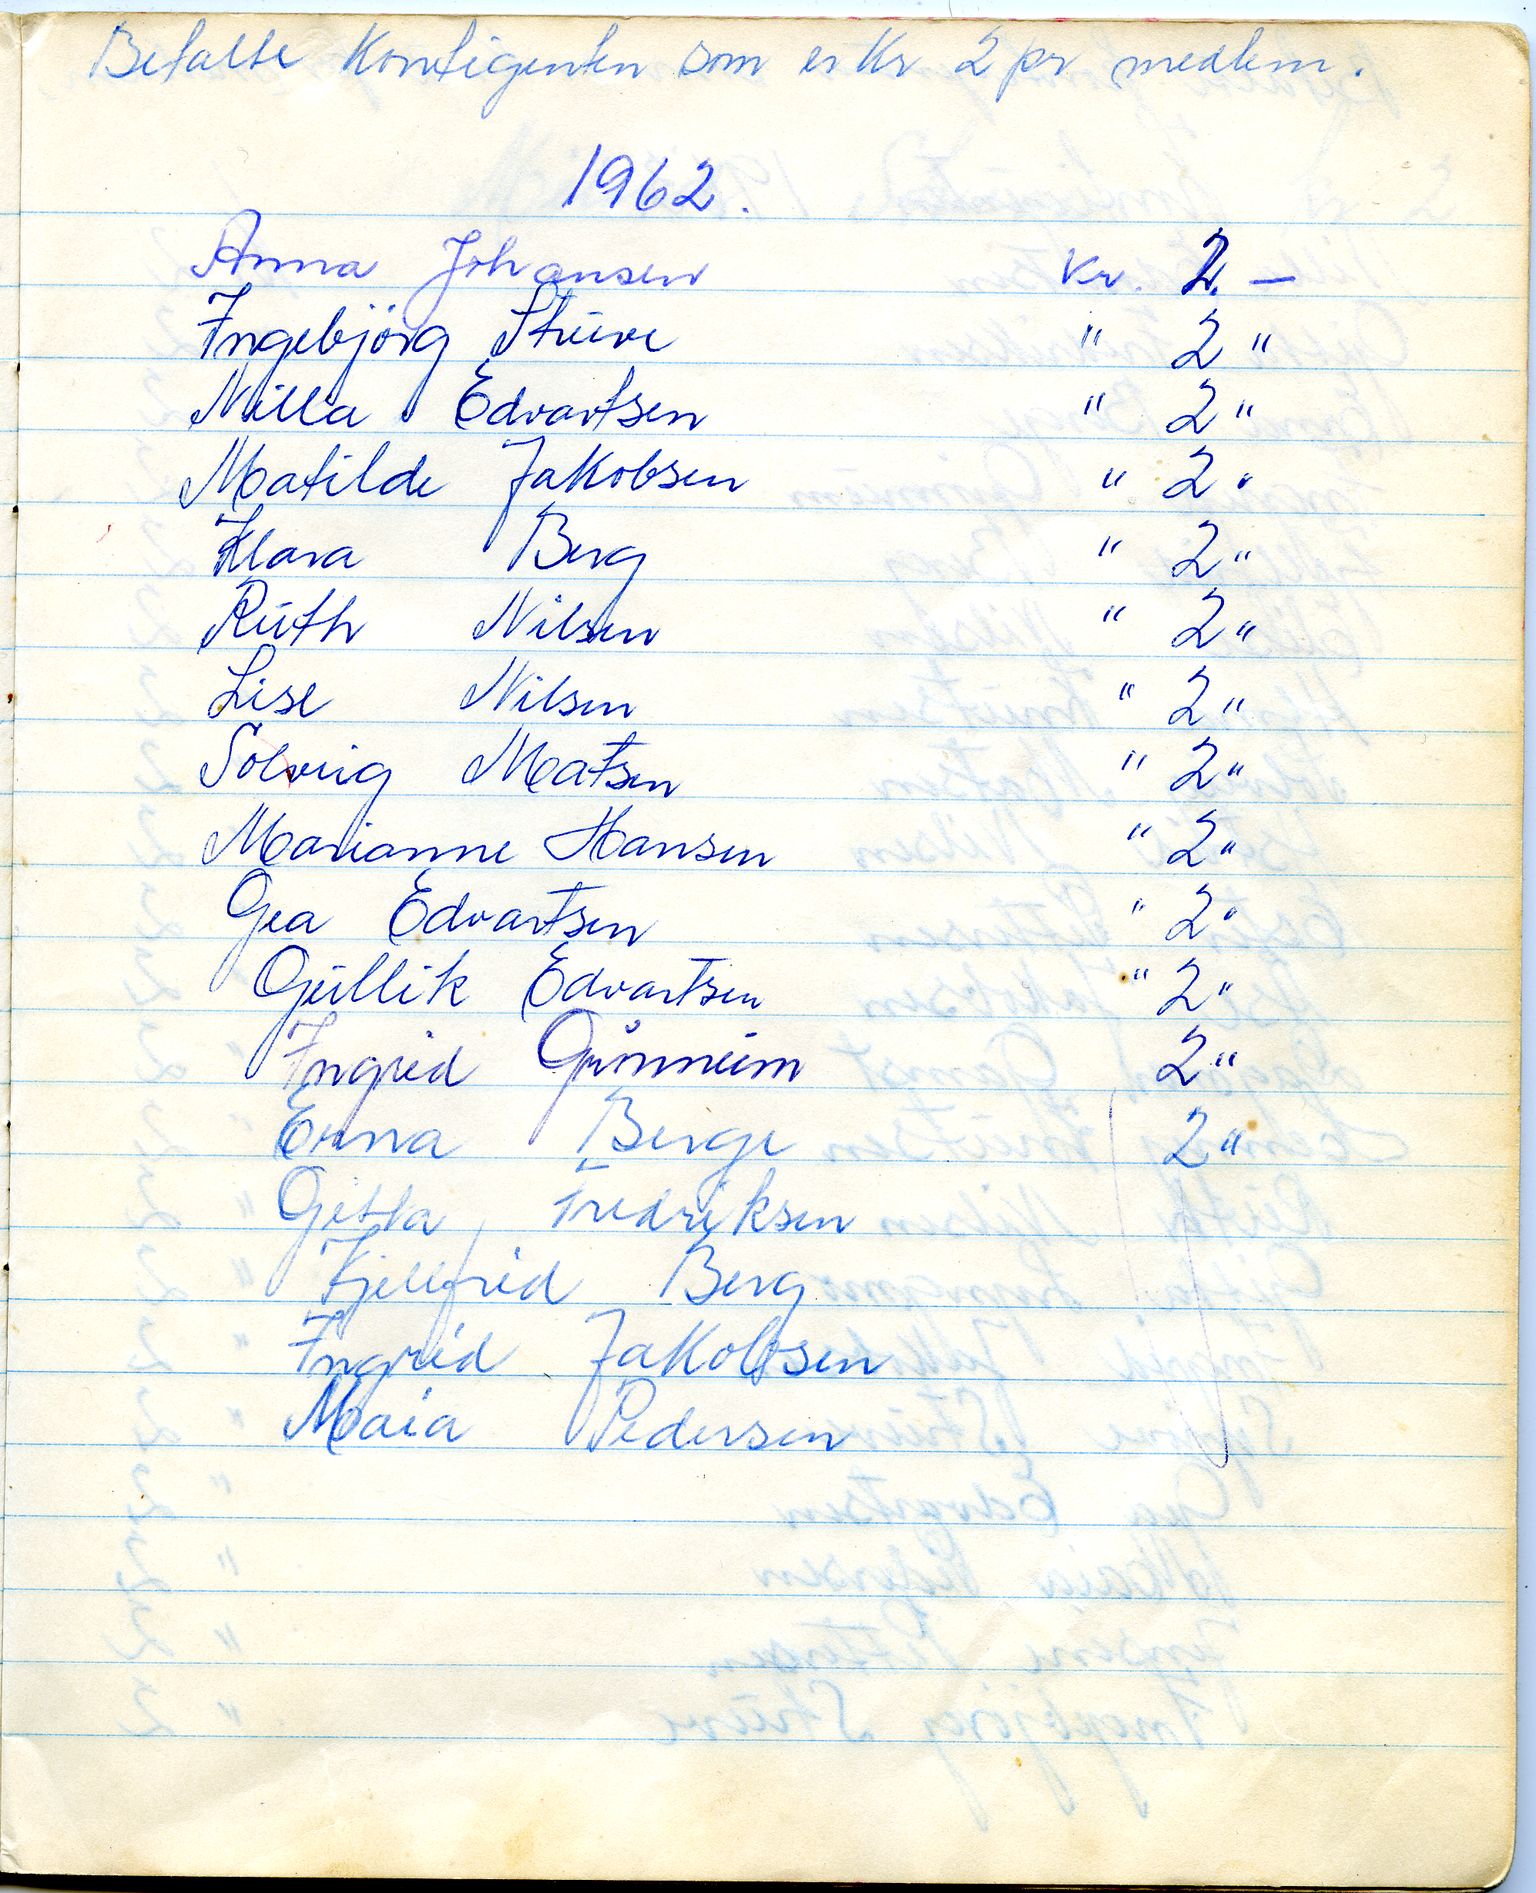 Betalte Kontigenten som er Kr 2 pr medlem.
1962.
Anna Johansen Kr. 2. —
Ingebjörg Strúve " 2 "
Milla Edvartsen " 2 "
Matilde Jakobsen " 2 "
Klara Berg " 2 "
Rúth Nilsen " 2 "
Lise Nilsen " 2 "
Solveig Matsen " 2 "
Marianne Hansen " 2 "
Gea Edvartsen " 2 "
Gúllik Edvartsen " 2 "
Ingrid Grönneim 2 "
Erna Berge 2 "
Gitta Fredriksen
Kjellfrid Berg
Ingrid Jakobsen
Maia Pedersen